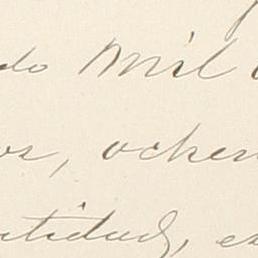 do Mil
os, ochen
tidad, e